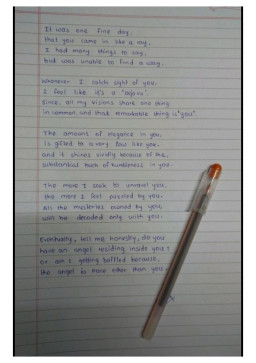 It was one fine day,
that you came in like a day.
I had many things to say,
but was unable to find a way.
Whenever I catch sight of you,
I feel like it's a "
Since, all my visions share one thing
in common, and that remarkable thing is "you".
The amount of elegance in you,
is gifted to a very few like you.
and it shines vividly because of the,
substantial touch of tenderness in you.
The more I seek to unravel you,
the more I feel puzzled by you.
All the mysteries owned by you,
will be decoded only with you.
Eventually, tell me honestly, do you
have an angel residing inside you?
or am I getting baffled because,
the angel is none other than you